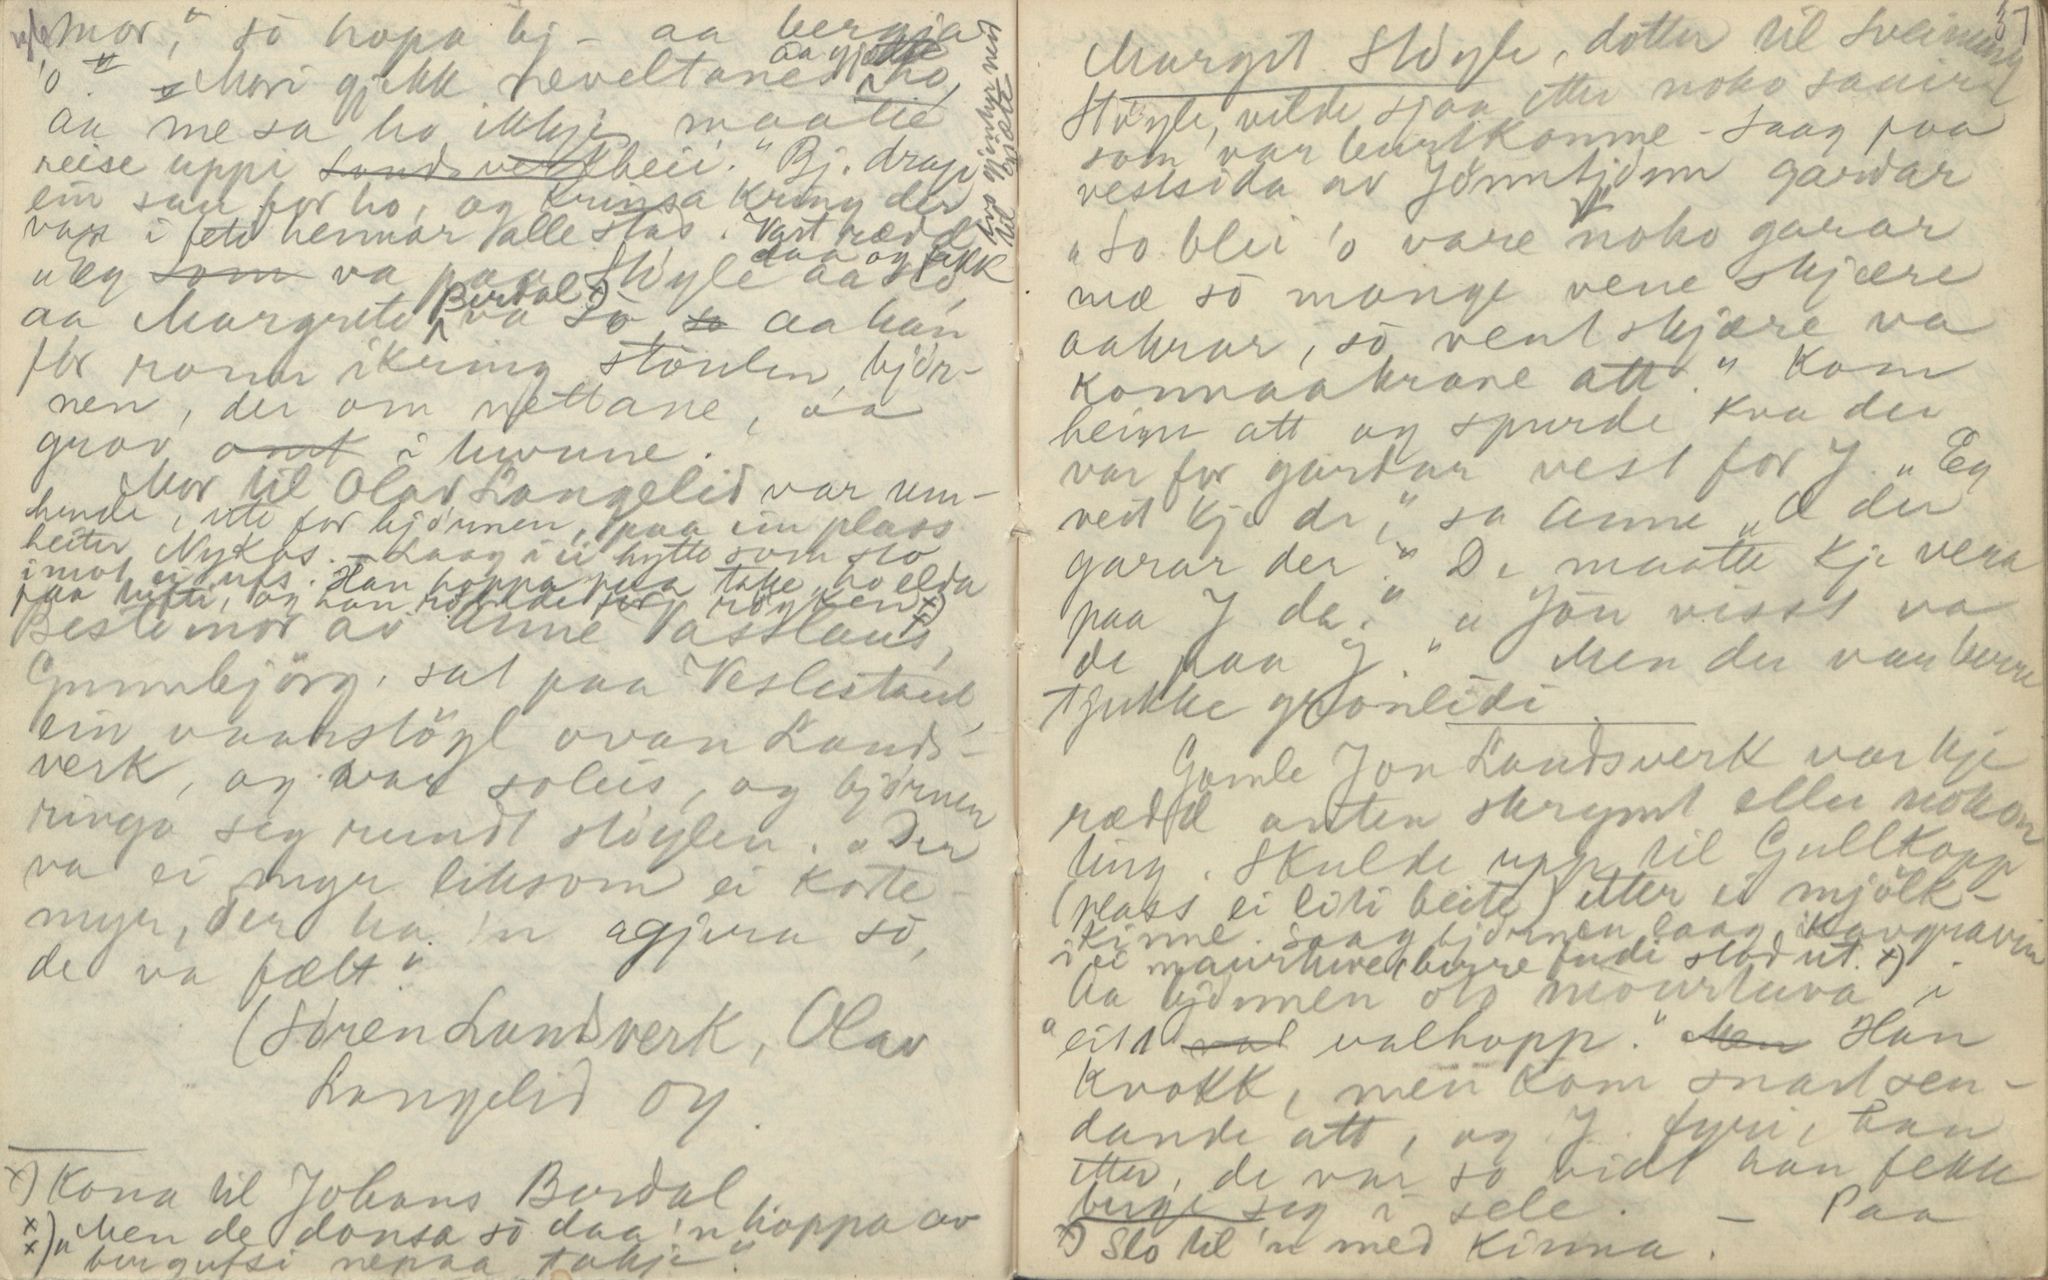 mor," sö hopa bj - aa bergja
'o." "Mori gjekk neveltanes ho,
aa me sa ho ikkje maatte
reise uppi Landsverkheii." Bj. drap
ein sau for ho, og kringsa kring der
var i hennar alle stas. Vart rædd
daa og fekk
"Eg som va paa Støyle aa sto,
aa Margrete Berdal x) va so, so aa han
fór ronn ikring stoulen, bjön-
nen, der om nettane, aa
grov omt i huvune.
Mor til Olav Langelid var um-
hende, ute for bjönnen, paa ein plass
heiter Nykos. - Laag i ei hytte som sto
imot ei ufs. Han hoppa paa taket, ho elda
paa hytti, og han römde for röyken xx)
Bestemor av Anne Vasstaul,
Gunnbjörg, sat paa Veslestaul,
ein vaarstöyl ovan Lands-
verk, og var soleis, og bjørnen
ringa seg rundt støylen. "Der
va ei myr liksom ei køte-
myr, der ha 'n agjera sö,
de va fælt."
(Sören Landsverk, Olav
Langelid og
x) Kona til Johans Berdal
xx) "Men de dansa sö daa 'n hoppa av
bergufsi nepaa takje."
37
Margit Støyle, dotter til Sveinung
Støyle, vilde sjaa etter noko sauir
som var burtkomne - Saag paa
vestsida av Jönntjönn gardar
"So blei 'o vare noko garar
mæ sö mange vene skjære
aakrar, sö vent skjære va
konnaakrane att." Kom
heim att og spurde kva der
var for gardar vest for J. "Eg
veit kje de," sa Anne "Æ der
garar der." "De maatte kje vera
paa J da." "Jön visst va
de paa J." Men der var berre
tjukke grönlidi
Gamle Jon Landsverk var kje
rædd anten skrymt eller nokon
ting. Skulde upp til Gullkopp
(plass ei liti beite) etter ei mjölk-
kinne. Saag bjørnen laag i kavgravin
i ei maurtuve (berre hudi stod ut. x)
Aa bjönnen og mourtuva i
"eitt val valhopp." Men Han
kvakk, men kom snart sen-
dande att, og J. fyri, han
etter, de var so vidt han fekk
berge seg i sele. - Paa
x) Slo til 'n med kinna.